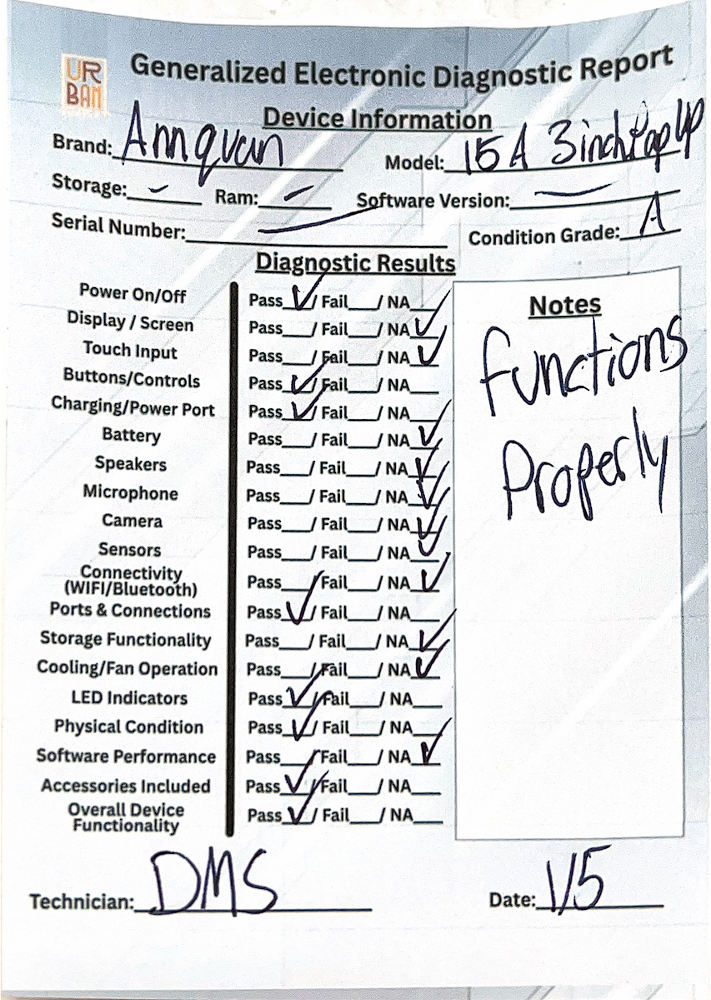 UR
BAN
Generalized Electronic Diagnostic Report
Device Information
Brand: Annquan Model: 15 A 3 inch Pop Up
Storage: - Ram: - Software Version: -
Serial Number: - Condition Grade: A
Diagnostic Results
Power On/Off Pass ✓/ Fail___/ NA___
Display / Screen Pass___/ Fail___/ NA ✓
Touch Input Pass___/ Fail___/ NA ✓
Buttons/Controls Pass ✓/ Fail___/ NA___
Charging/Power Port Pass ✓/ Fail___/ NA___
Battery Pass___/ Fail___/ NA ✓
Speakers Pass___/ Fail___/ NA ✓
Microphone Pass___/ Fail___/ NA ✓
Camera Pass___/ Fail___/ NA ✓
Sensors Pass___/ Fail___/ NA ✓
Connectivity
(WIFI/Bluetooth) Pass___/ Fail___/ NA ✓
Ports & Connections Pass ✓/ Fail___/ NA___
Storage Functionality Pass___/ Fail___/ NA ✓
Cooling/Fan Operation Pass___/ Fail___/ NA ✓
LED Indicators Pass ✓/ Fail___/ NA___
Physical Condition Pass ✓/ Fail___/ NA___
Software Performance Pass___/ Fail___/ NA ✓
Accessories Included Pass ✓/ Fail___/ NA___
Overall Device
Functionality Pass ✓/ Fail___/ NA___
Notes
Functions
Properly
Technician: DMS Date: 1/5